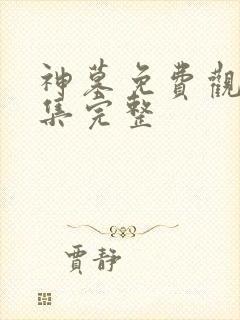 神墓免費觀
集完整
賈靜